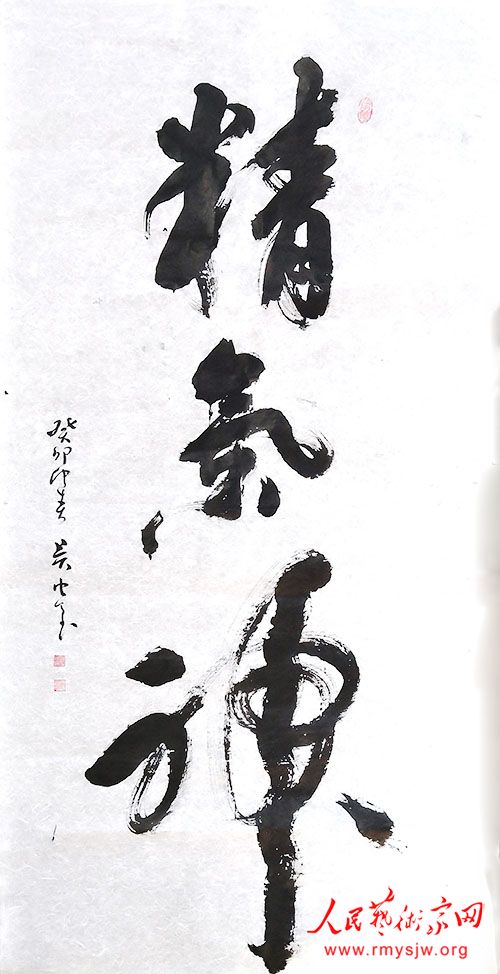 精氣神
癸卯仲春 吴
人民藝術家网
www.rmysjw.org